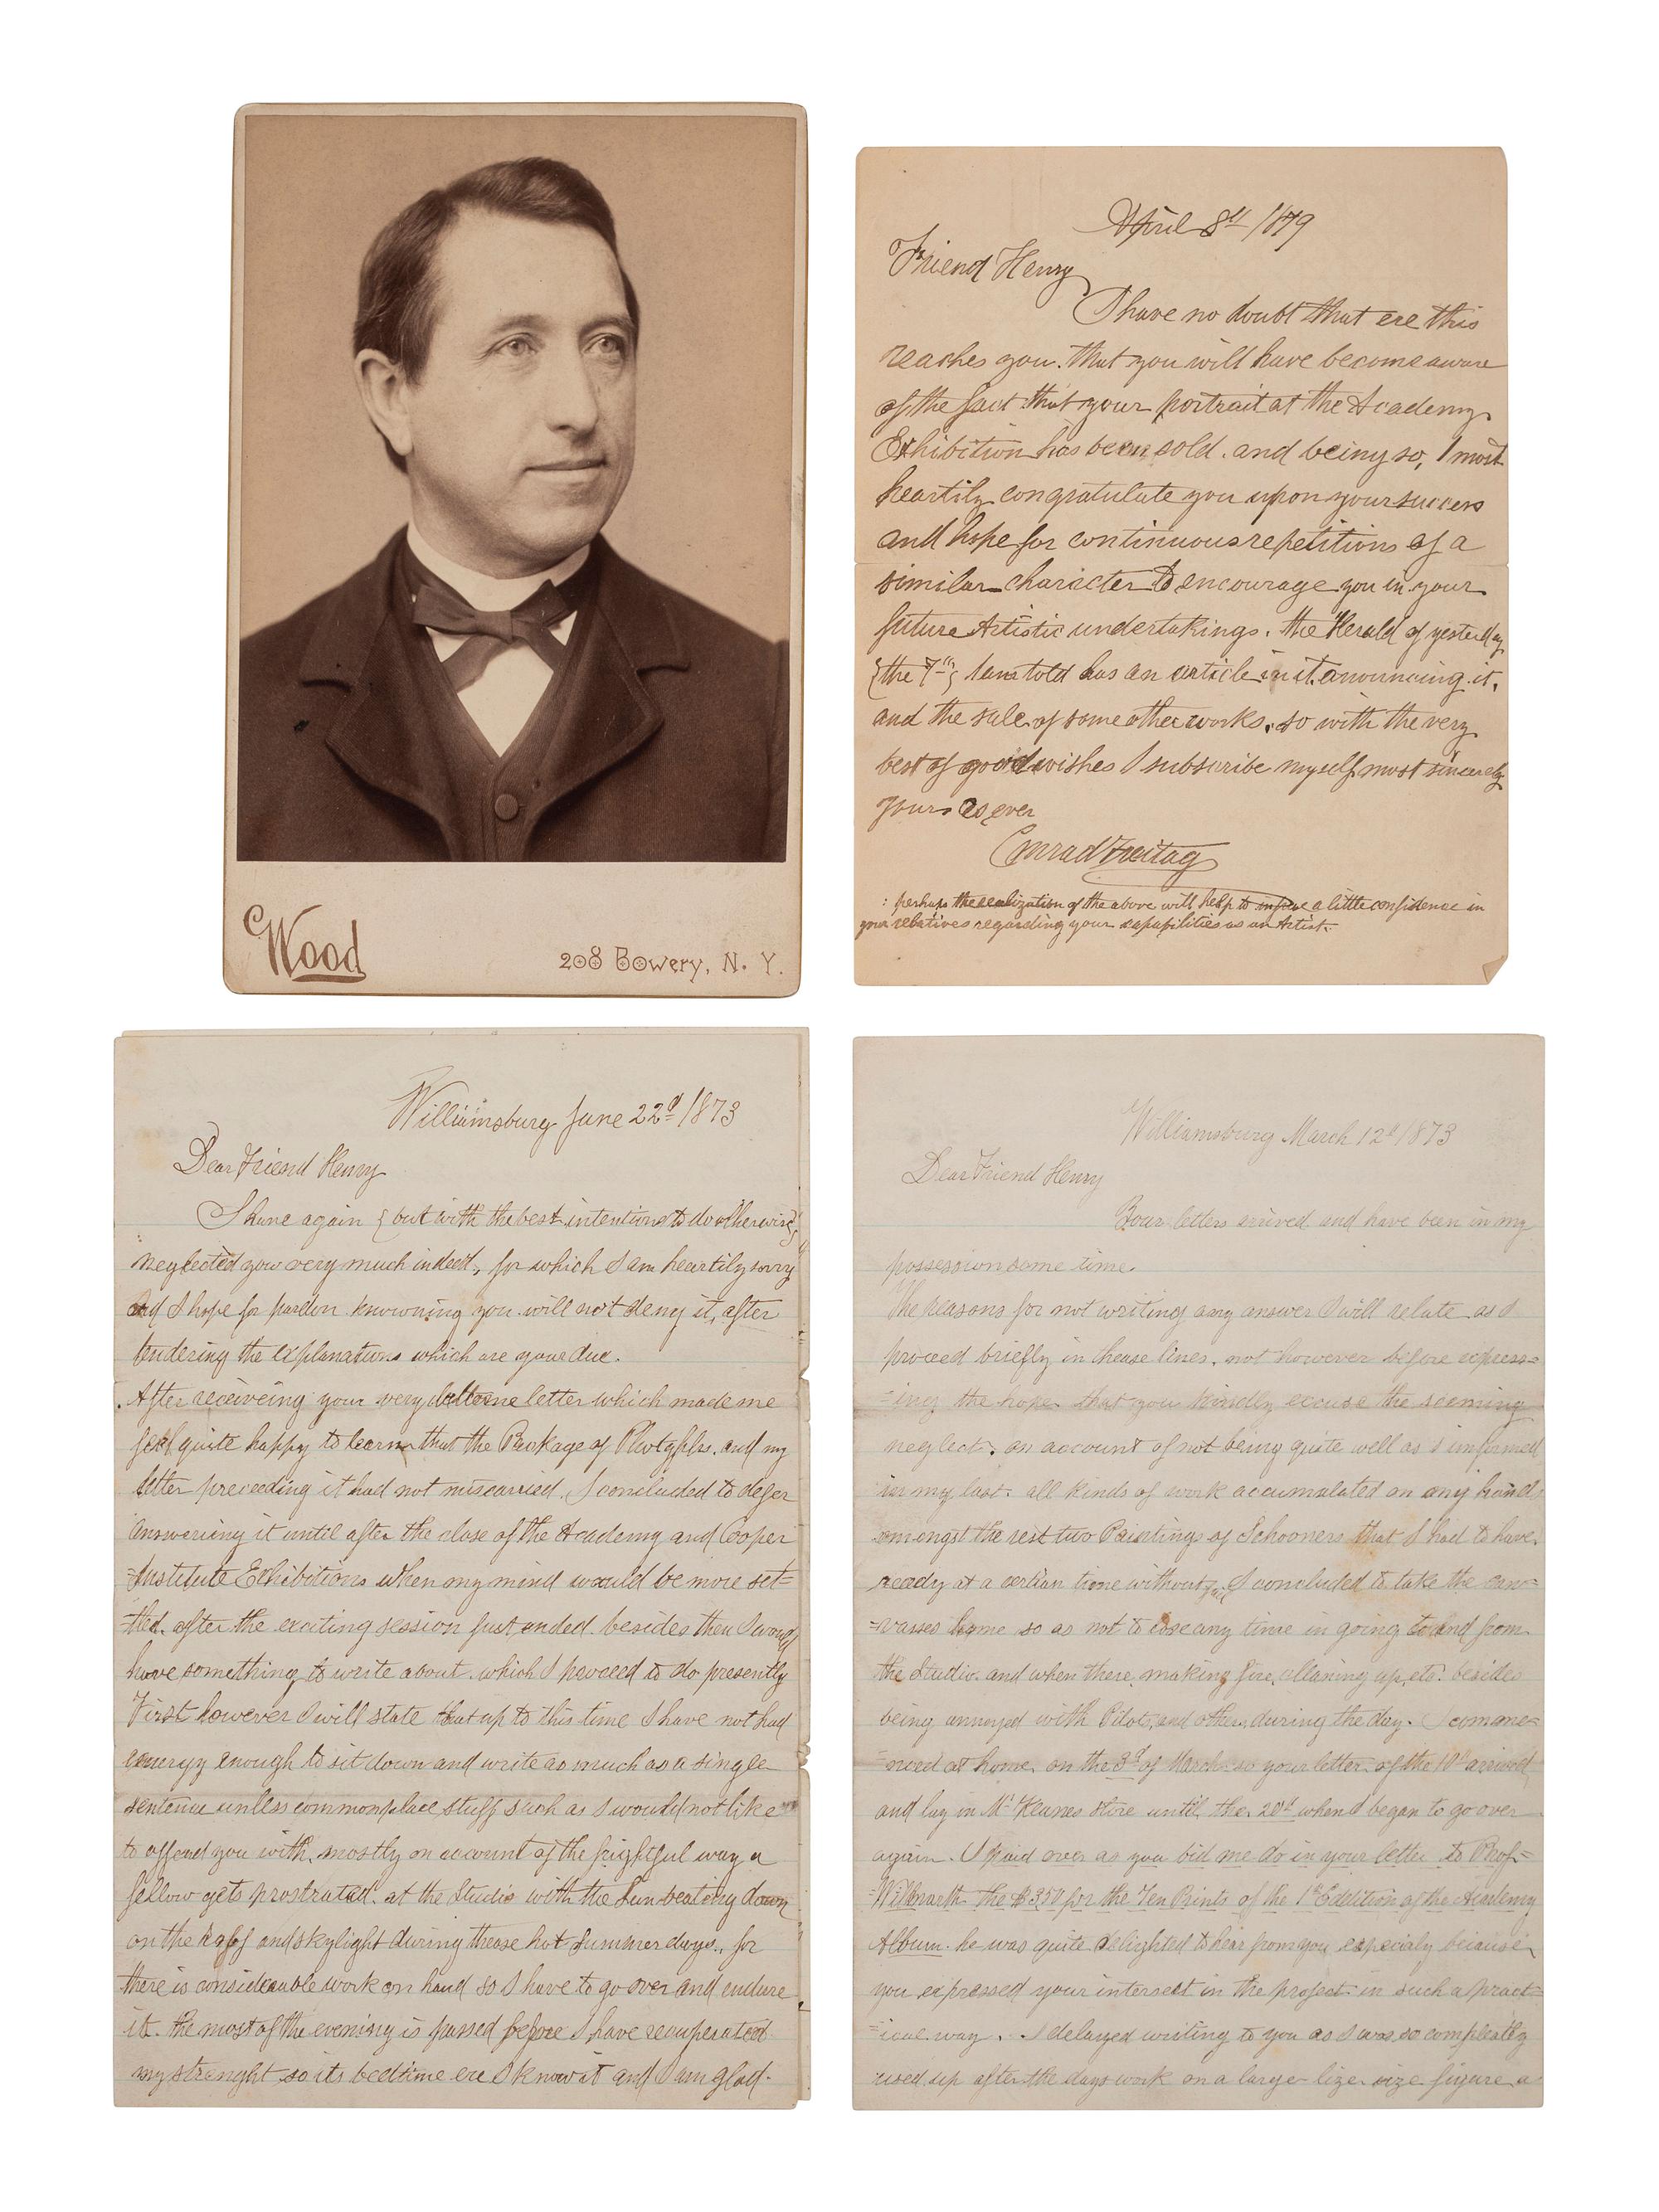 Wood
208 Bowery, N. Y.
April 8th /1879
Friend Henry
I have no doubt that ere this
reaches you. that you will have become aware
of the fact that your portrait at the Academy
Exhibition has been sold. and being so, I most
heartily congratulate you upon your success
and hope for continuous repetitions of a
similar character to encourage you in your
future Artistic undertakings. the Herald of yesterday
{the 7th} I am told has an article in it, anouncing it,
and the sale of some other works. so with the very
best of good wishes I subscribe myself most sincerely
yours as ever
Conrad Freitag
: perhaps the realization of the above will help to inspire a little confidence in
your relatives regarding your capapilities as an Artist.
Williamsburg June 22d /1873
Dear Friend Henry
I have again { but with the best intentions to do otherwise}
neglected you very much indeed, for which I am heartily sorry
and I hope for pardon knowning you will not deny it, after
tendering the explanations which are your due.
After receiveing your very welcome letter which made me
feel quite happy to learn that the Package of Photghphs. and my
letter preceeding it had not miscarried, I concluded to defer
answering it until after the close of the Academy and Cooper
=Institute Exhibitions when my mind would be more set=
=tled. after the exciting session just ended. besides then I would
have something to write about. which I proceed to do presently
First however I will state that up to this time I have not had
energy enough to sit down and write as much as a single
sentence unless commonplace stuff such as I would not like
to offend you with, mostly on account of the frightful way a
fellow gets prostrated. at the Studio with the Sun beating down
on the roof and skylight during thease hot Summer days., for
there is considerable work on hand so I have to go over and endure
it. the most of the evening is passed before I have recuperated
my strenght so its bedtime ere I know it and I am glad.
Williamsburg March 12d /1873
Dear Friend Henry
Your letters arived and have been in my
possession some time.
The Reasons for not writing any answer I will relate as I
proceed briefly in thease lines, not however before express=
=ing the hope that you kindly excuse the seeming
neglect. on account of not being quite well as I informed
in my last. all kinds of work accumulated on my hands
amongst the rest two Paintings of Schooners that I had to have
ready at a certian time without fail I concluded to take the can=
=vasses home so as not to lose any time in going to and from
the Studio. and when there, making fire, cleaning up, etc. besides
being annoyed with Pilots, and others, during the day. I comme=
=nced at home, on the 3d of March so your letter of the 10th arrived
and lay in Mr Keanes store until the 20th when I began to go over
again. I paid over as you bid me do in your letter to Prof=
Wilmarth the $3.50 for the Ten Prints of the 1st Edition of the Academy
Album. he was quite delighted to hear from you especialy beiause
you expressed your interest in the project in such a pract=
=ical way. I delayed writing to you as I was so compleatly
used up after the days work on a large life size figure a